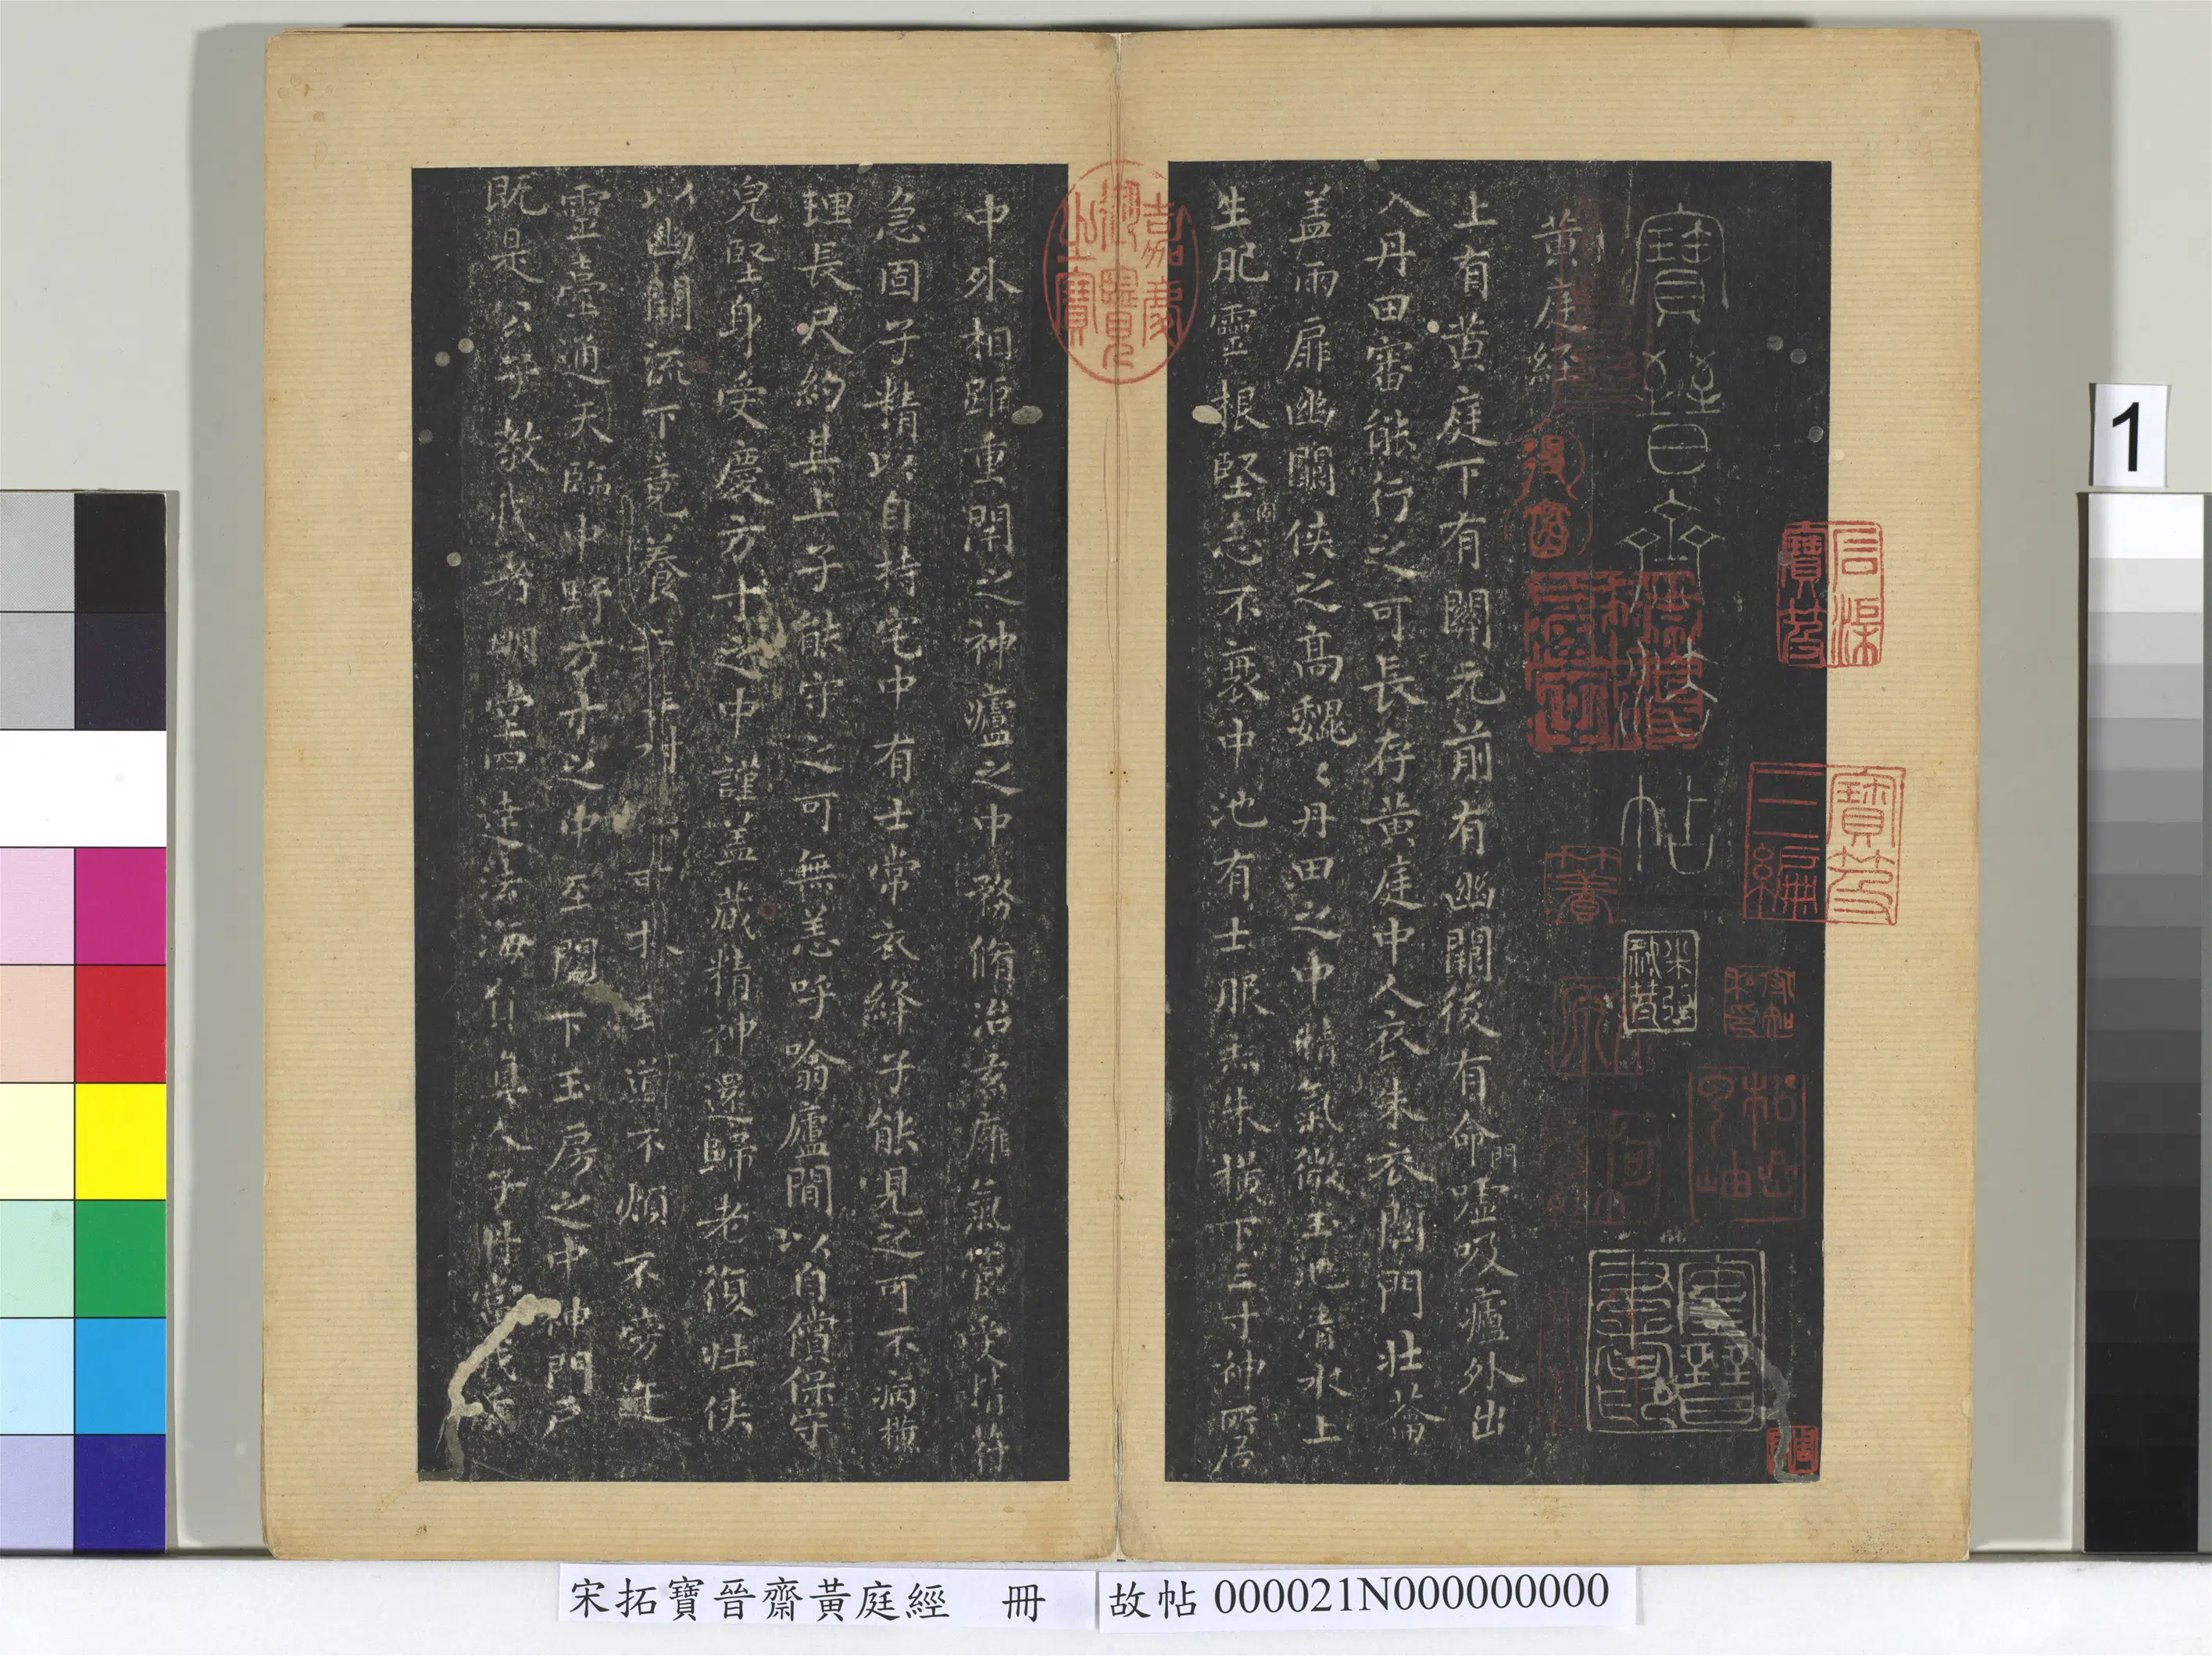 寶晉齋法帖
黃庭經
上有黄庭下有關元前有幽闕後有命門嘘吸廬外出
入丹田審能行之可長存黃庭中人衣朱衣關門壯蘥
盖兩扉幽闕俠之高巍〻丹田之中精氣微玉池清水上
生肥靈根堅固志不衰中池有士服赤朱横下三寸神所居
中外相距重閇之神廬之中務脩治玄膺氣管受精符
急固子精以自持宅中有士常衣絳子能見之可不病橫
理長尺約其上子能守之可無恙呼噏廬間以自償保守
皃堅身受慶方寸之中謹盖藏精神還歸老復壯俠
以幽闕流下竟養子玉樹可扙至道不煩不旁迕
靈臺通天臨中野方寸之中至關下玉房之中神門戶
既是公子教我者明堂四達法海負真人子丹當我前
嘉慶御覽之寶
寶笈三編
宋拓寶晉齋黃庭經 冊
故帖 000021N000000000
1